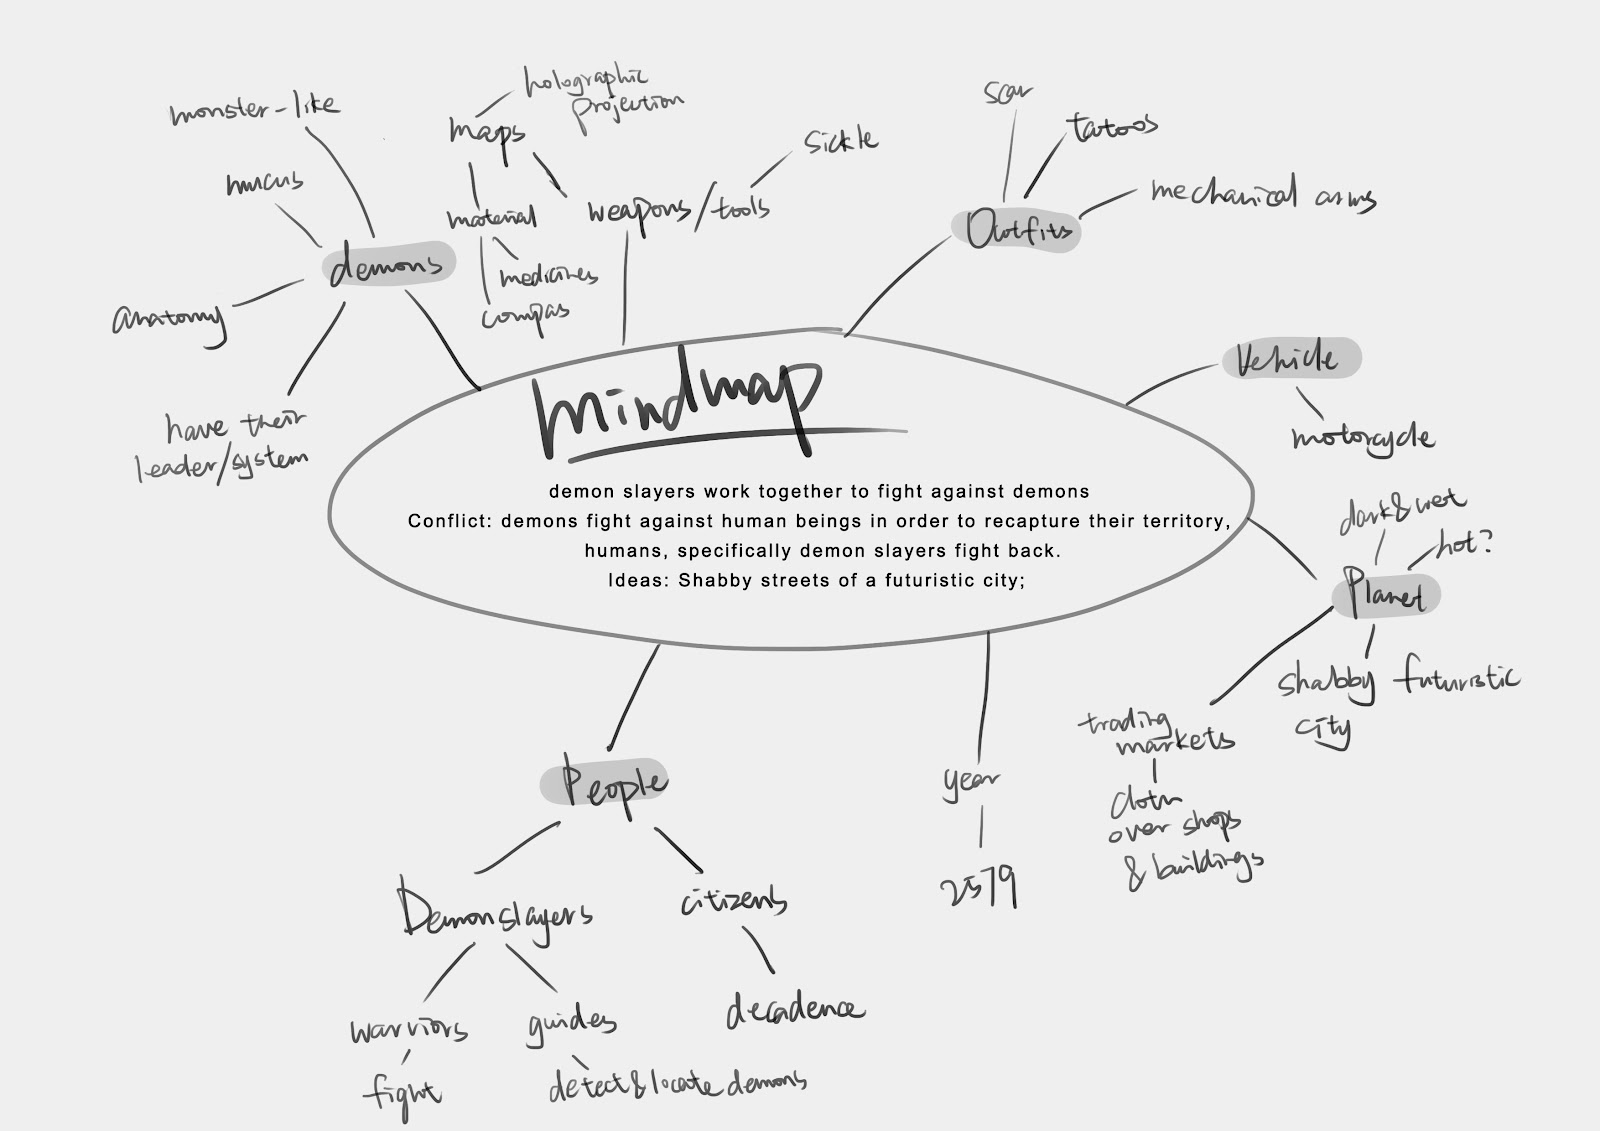 holographic
projection
maps
monster-like
mucus
material
medicines
compas
weapons/tools
sickle
scar
tatoos
mechanical arms
Outfits
demons
anatomy
have their
leader/system
Mindmap
demon slayers work together to fight against demons
Conflict: demons fight against human beings in order to recapture their territory,
humans, specifically demon slayers fight back.
Ideas: Shabby streets of a futuristic city;
Vehicle
motorcycle
dark&wet
hot?
Planet
shabby futuristic
city
trading
markets
cloth
over shops
& buildings
year
2579
People
Demonslayers
citizens
warriors
guides
decadence
fight
detect&locate demons